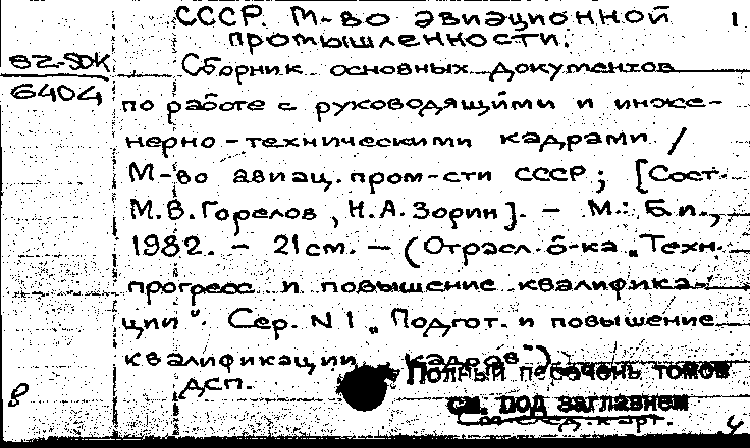 СССР. М-во авиационной 1
промышленности.
82-5ДК
6404
Сборник основных документов
по работе с руководящими и инже-
нерно-техническими кадрами /
М-во авиац. пром-сти СССР; [Сост.
М.В. Горелов, Н.А. Зорин]. - М.: Б.и.,
1982. - 21 см. - (Отрасл. б-ка „Техн.
прогресс и повышение квалифика-
ции". Сер. N 1 „Подгот. и повышение
квалификации кадров")
ДСП.
Полный перечень томов
см. под заглавием
В
4